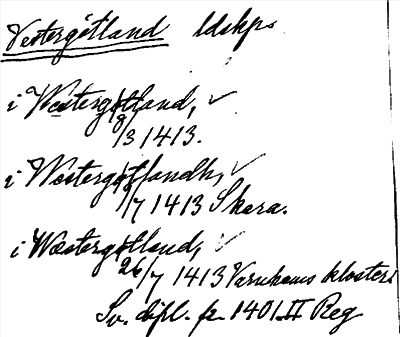 Vestergötland ldskp.
i Westergøtland, ✓
8/3 1413.
i Wæstergøtlandh, ✓
/7 1413 Skara.
i Wæstergøtland, ✓
26/7 1413 Varnhems kloster.
Sv. dipl. fr. 1401 II Reg